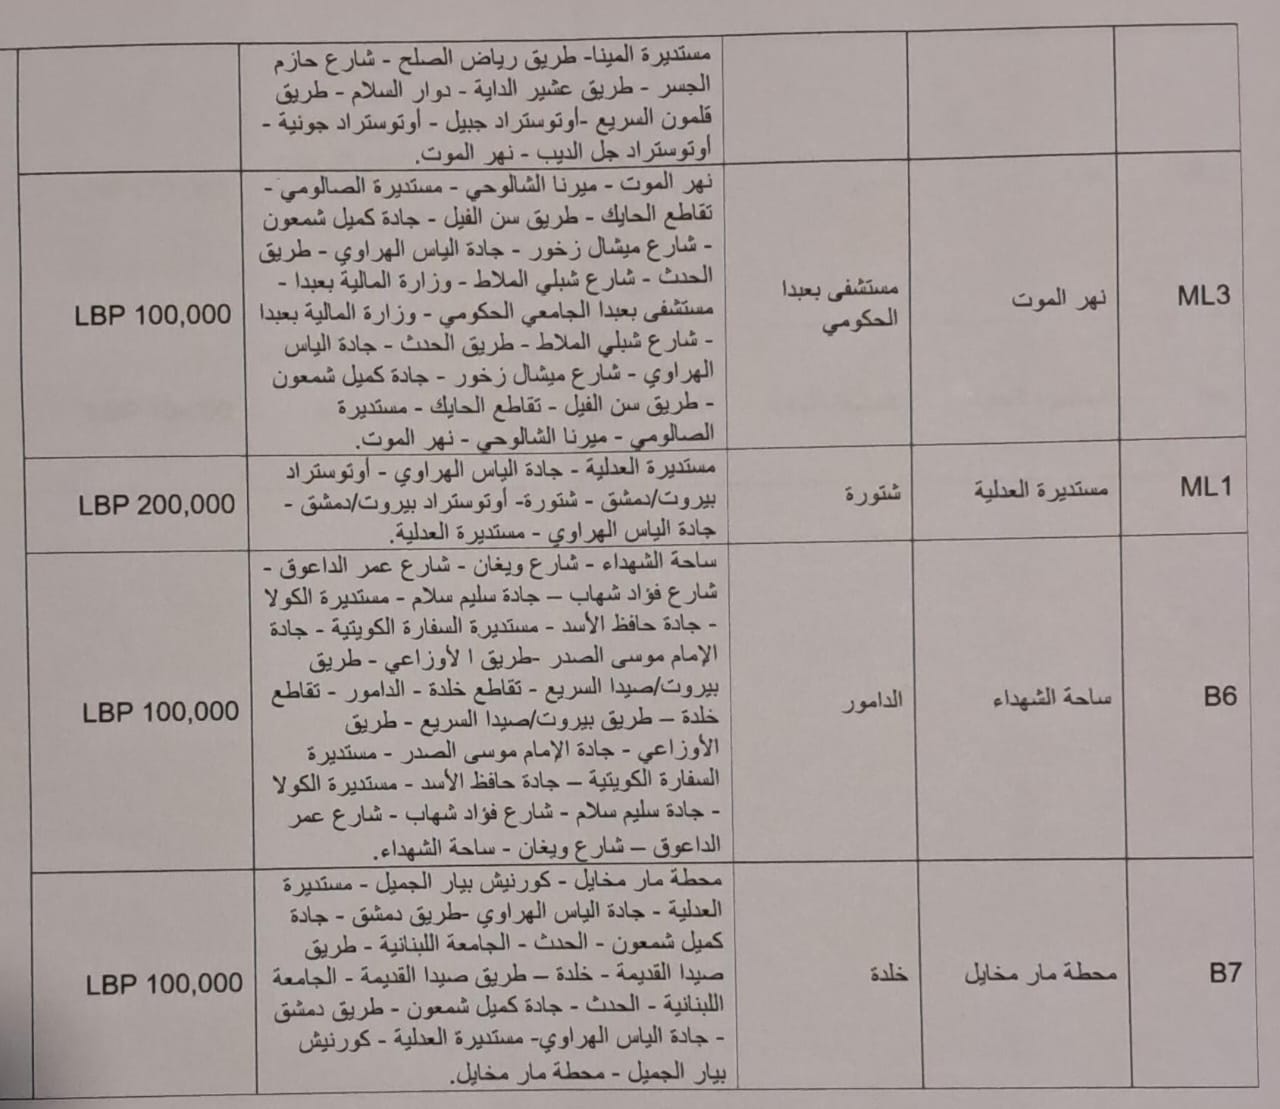 مستديرة المينا- طريق رياض الصلح - شارع حازم
الجسر - طريق عشير الداية - دوار السلام - طريق
قلمون السريع -أوتوستراد جبيل - أوتوستراد جونية -
أوتوستراد جل الديب - نهر الموت.
ML3
نهر الموت
مستشفى بعبدا
الحكومي
نهر الموت - ميرنا الشالوحي - مستديرة الصالومي -
تقاطع الحايك - طريق سن الفيل - جادة كميل شمعون
- شارع ميشال زخور - جادة الياس الهراوي - طريق
الحدث - شارع شبلي الملاط - وزارة المالية بعبدا -
مستشفى بعبدا الجامعي الحكومي - وزارة المالية بعبدا
- شارع شبلي الملاط - طريق الحدث - جادة الياس
الهراوي - شارع ميشال زخور - جادة كميل شمعون
- طريق سن الفيل - تقاطع الحايك - مستديرة
الصالومي - ميرنا الشالوحي - نهر الموت.
LBP 100,000
ML1
مستديرة العدلية
شتورة
مستديرة العدلية - جادة الياس الهراوي - أوتوستراد
بيروت/دمشق - شتورة- أوتوستراد بيروت/دمشق -
جادة الياس الهراوي - مستديرة العدلية.
LBP 200,000
B6
ساحة الشهداء
الدامور
ساحة الشهداء - شارع ويغان - شارع عمر الداعوق -
شارع فؤاد شهاب – جادة سليم سلام - مستديرة الكولا
- جادة حافظ الأسد - مستديرة السفارة الكويتية - جادة
الإمام موسى الصدر -طريق ا لأوزاعي - طريق
بيروت/صيدا السريع - تقاطع خلدة - الدامور - تقاطع
خلدة – طريق بيروت/صيدا السريع - طريق
الأوزاعي - جادة الإمام موسى الصدر - مستديرة
السفارة الكويتية – جادة حافظ الأسد - مستديرة الكولا
- جادة سليم سلام - شارع فؤاد شهاب - شارع عمر
الداعوق – شارع ويغان - ساحة الشهداء.
LBP 100,000
B7
محطة مار مخايل
خلدة
محطة مار مخايل - كورنيش بيار الجميل - مستديرة
العدلية - جادة الياس الهراوي -طريق دمشق - جادة
كميل شمعون - الحدث - الجامعة اللبنانية - طريق
صيدا القديمة - خلدة – طريق صيدا القديمة - الجامعة
اللبنانية - الحدث - جادة كميل شمعون - طريق دمشق
- جادة الياس الهراوي- مستديرة العدلية - كورنيش
بيار الجميل - محطة مار مخايل.
LBP 100,000